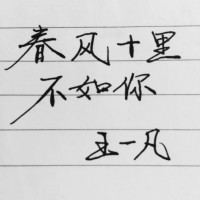 春风十里
不如你
王一凡